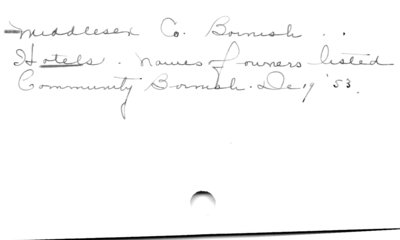 Middlesex Co. Bornish . .
Hotels . names of owners listed
Community Bornish. De 19 '53.